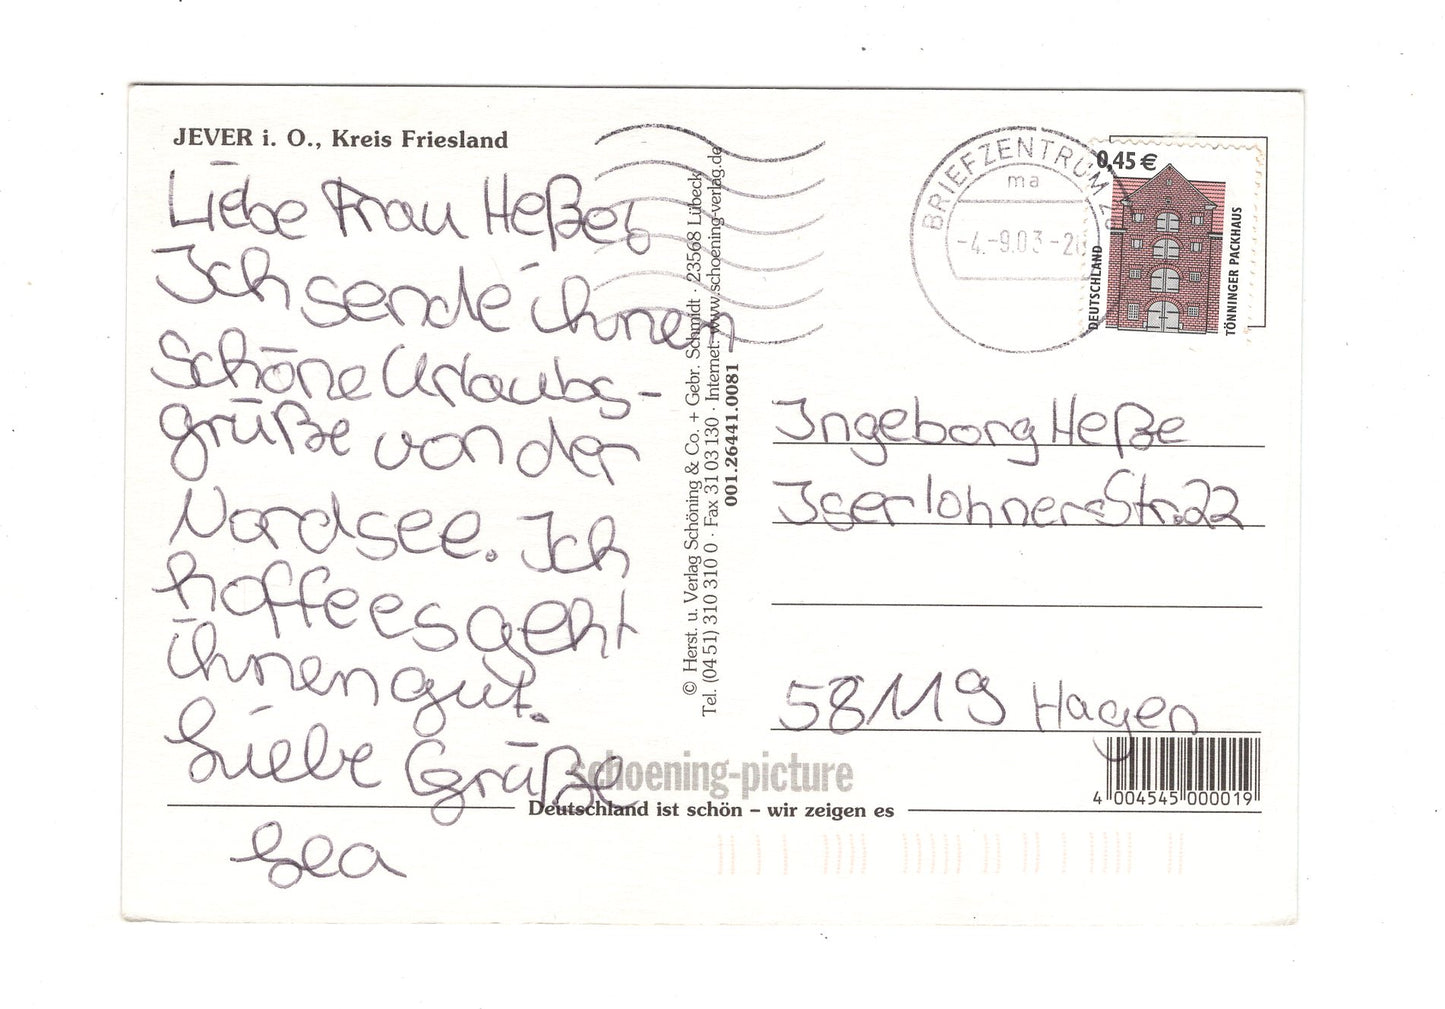 JEVER i. O., Kreis Friesland
Liebe Frau Heßer
Ich sende ihnen
Schöne Urlaubs-
grüße von der
Nordsee. Ich
hoffe es geht
ihnen gut.
Liebe Grüße
Lea
© Herst. u. Verlag Schöning & Co. + Gebr. Schmidt · 23568 Lübeck
Tel. (04 51) 310 310 0 · Fax 31 03 130 · Internet: www.schoening-verlag.de
001.26441.0081
BRIEFZENTRUM 2
ma
-4.-9.03-20
0,45 €
DEUTSCHLAND
TÖNNINGER PACKHAUS
Ingeborg Heße
Iserlohner Str. 22
58119 Hagen
schoening-picture
4 004545 000019
Deutschland ist schön – wir zeigen es